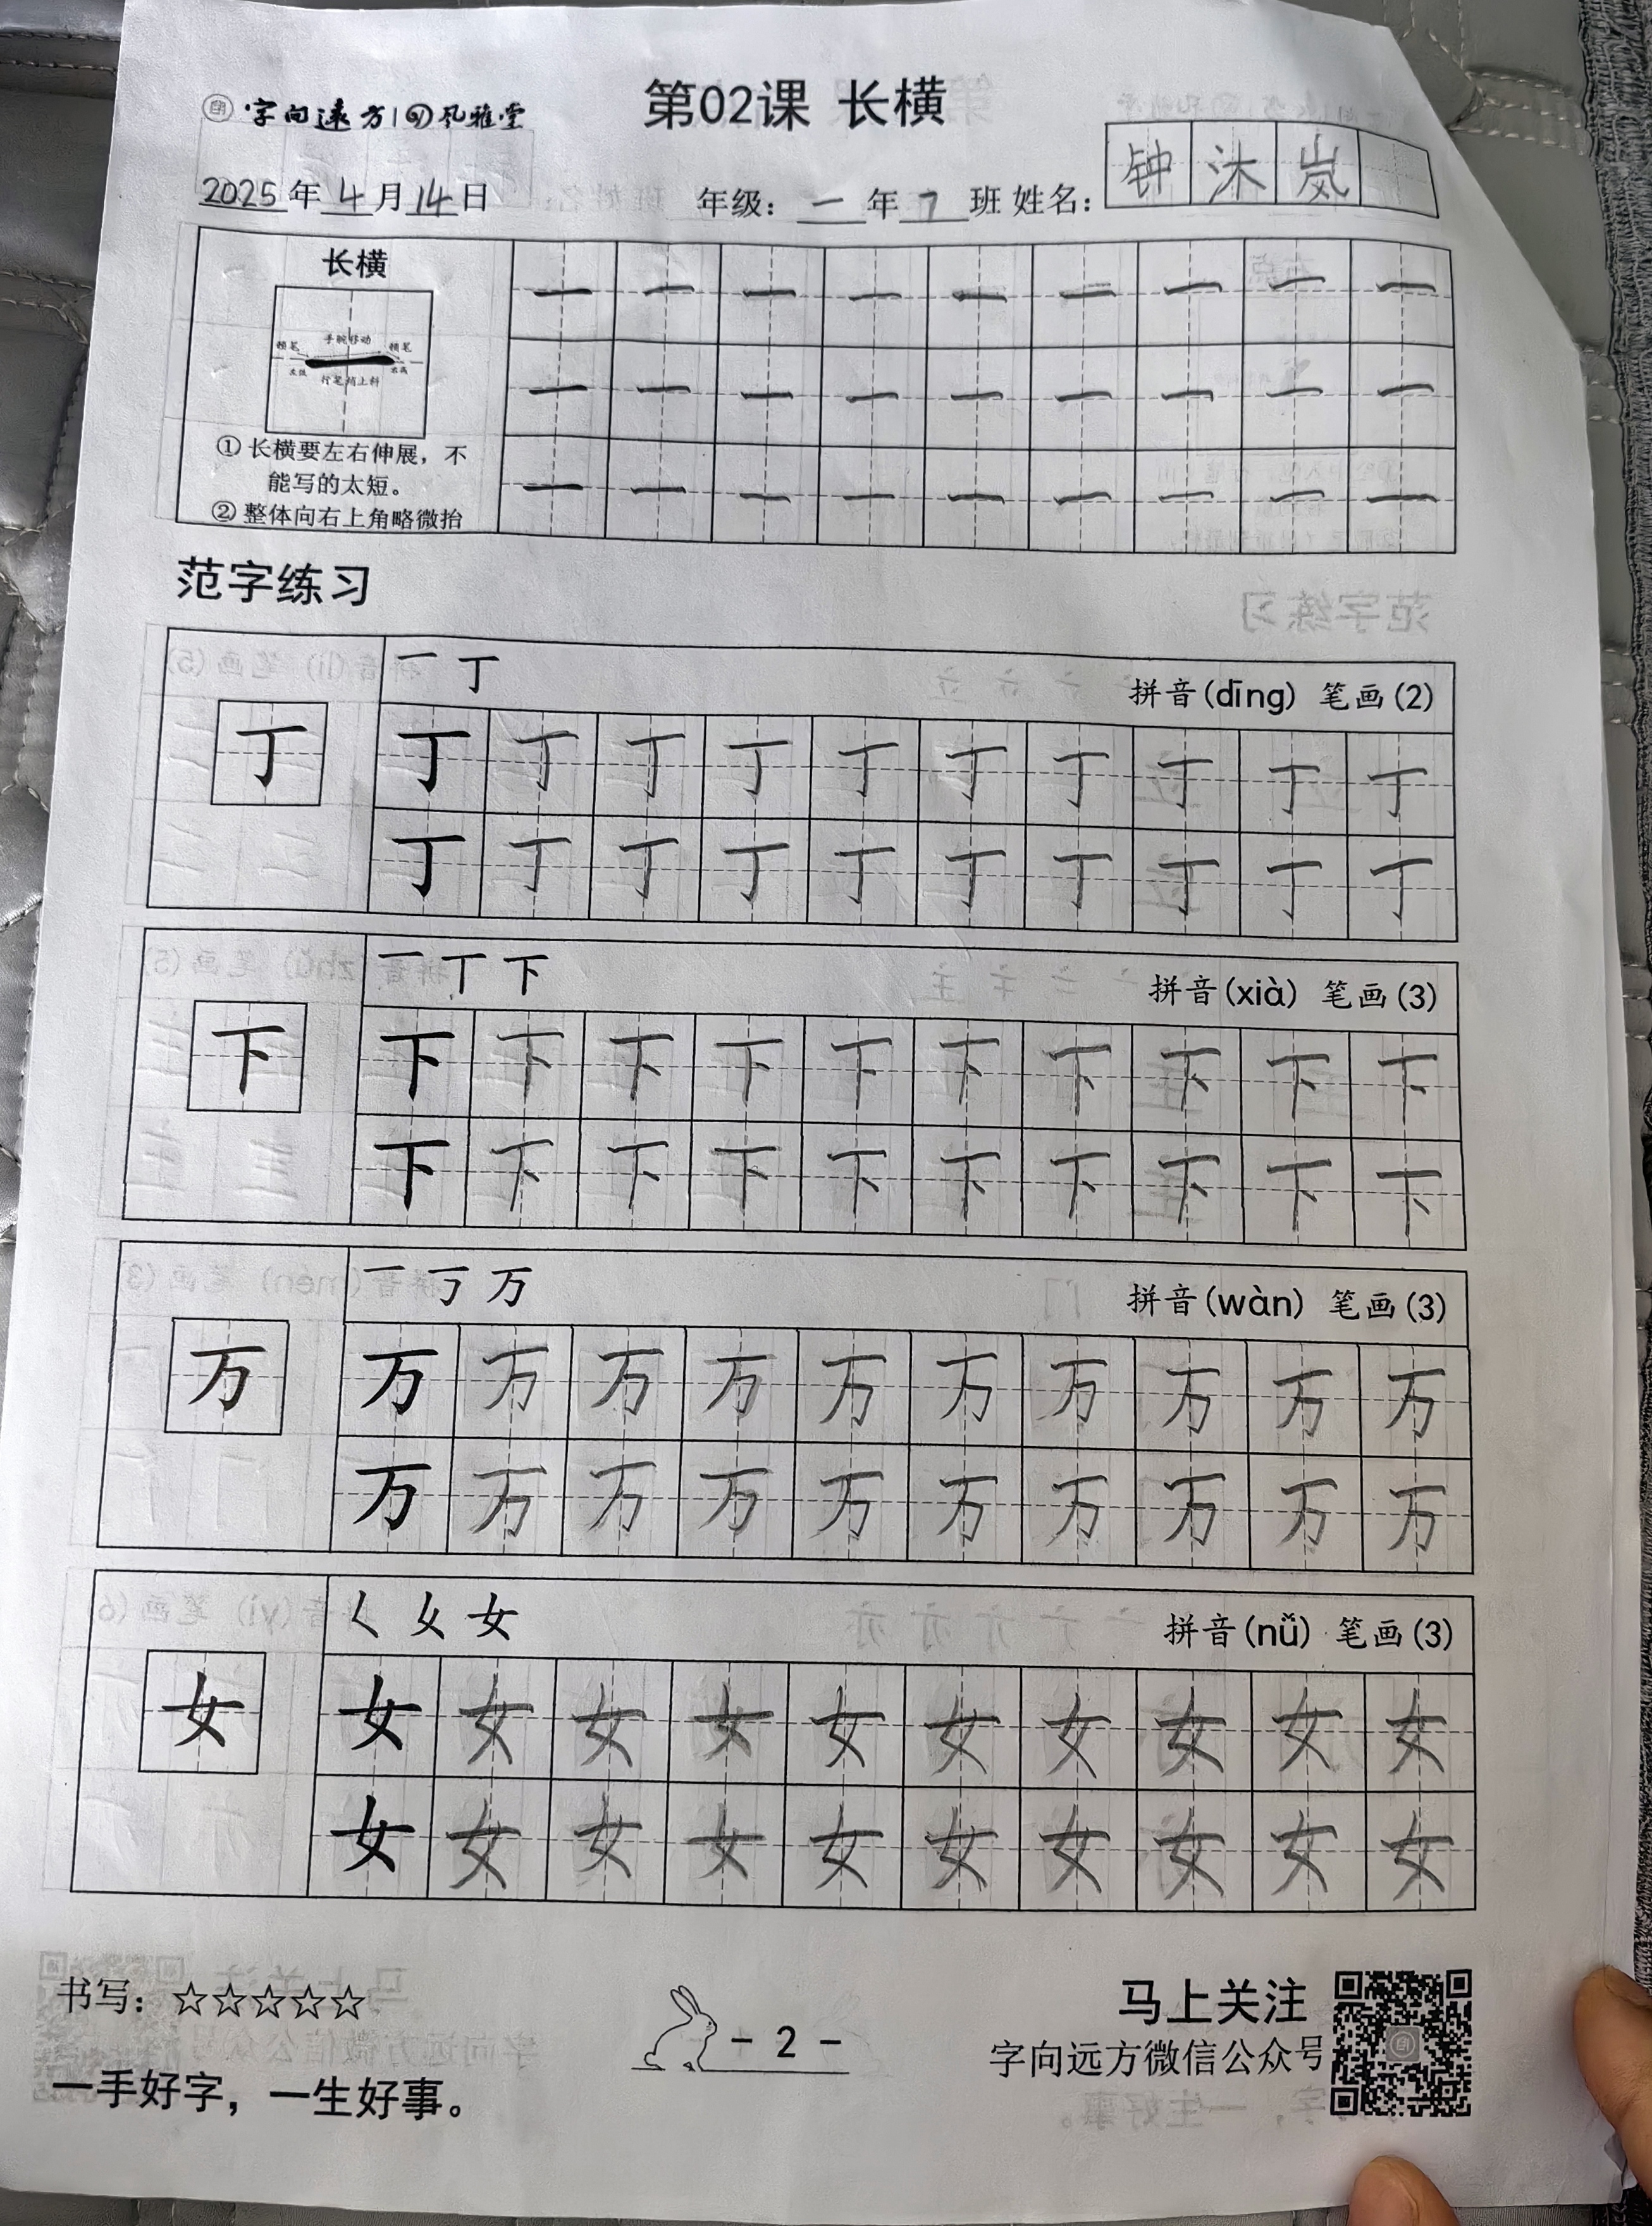 字向远方 风雅堂
第02课 长横
2025年4月14日 年级：一年7班 姓名：钟沐岚
长横
顿笔 手腕移动 顿笔
左低 行笔稍上斜 右高
① 长横要左右伸展，不
能写的太短。
② 整体向右上角略微抬
一 一 一 一 一 一 一 一 一
一 一 一 一 一 一 一 一 一
一 一 一 一 一 一 一 一 一
范字练习
一 丁 拼音(dīng) 笔画(2)
丁
丁 丁 丁 丁 丁 丁 丁 丁 丁 丁
丁 丁 丁 丁 丁 丁 丁 丁 丁 丁
一 丅 下 拼音(xià) 笔画(3)
下
下 下 下 下 下 下 下 下 下 下
下 下 下 下 下 下 下 下 下 下
一 丆 万 拼音(wàn) 笔画(3)
万
万 万 万 万 万 万 万 万 万 万
万 万 万 万 万 万 万 万 万 万
く 女 女 拼音(nǚ) 笔画(3)
女
女 女 女 女 女 女 女 女 女 女
女 女 女 女 女 女 女 女 女 女
书写：☆☆☆☆☆
一手好字，一生好事。
- 2 -
马上关注
字向远方微信公众号